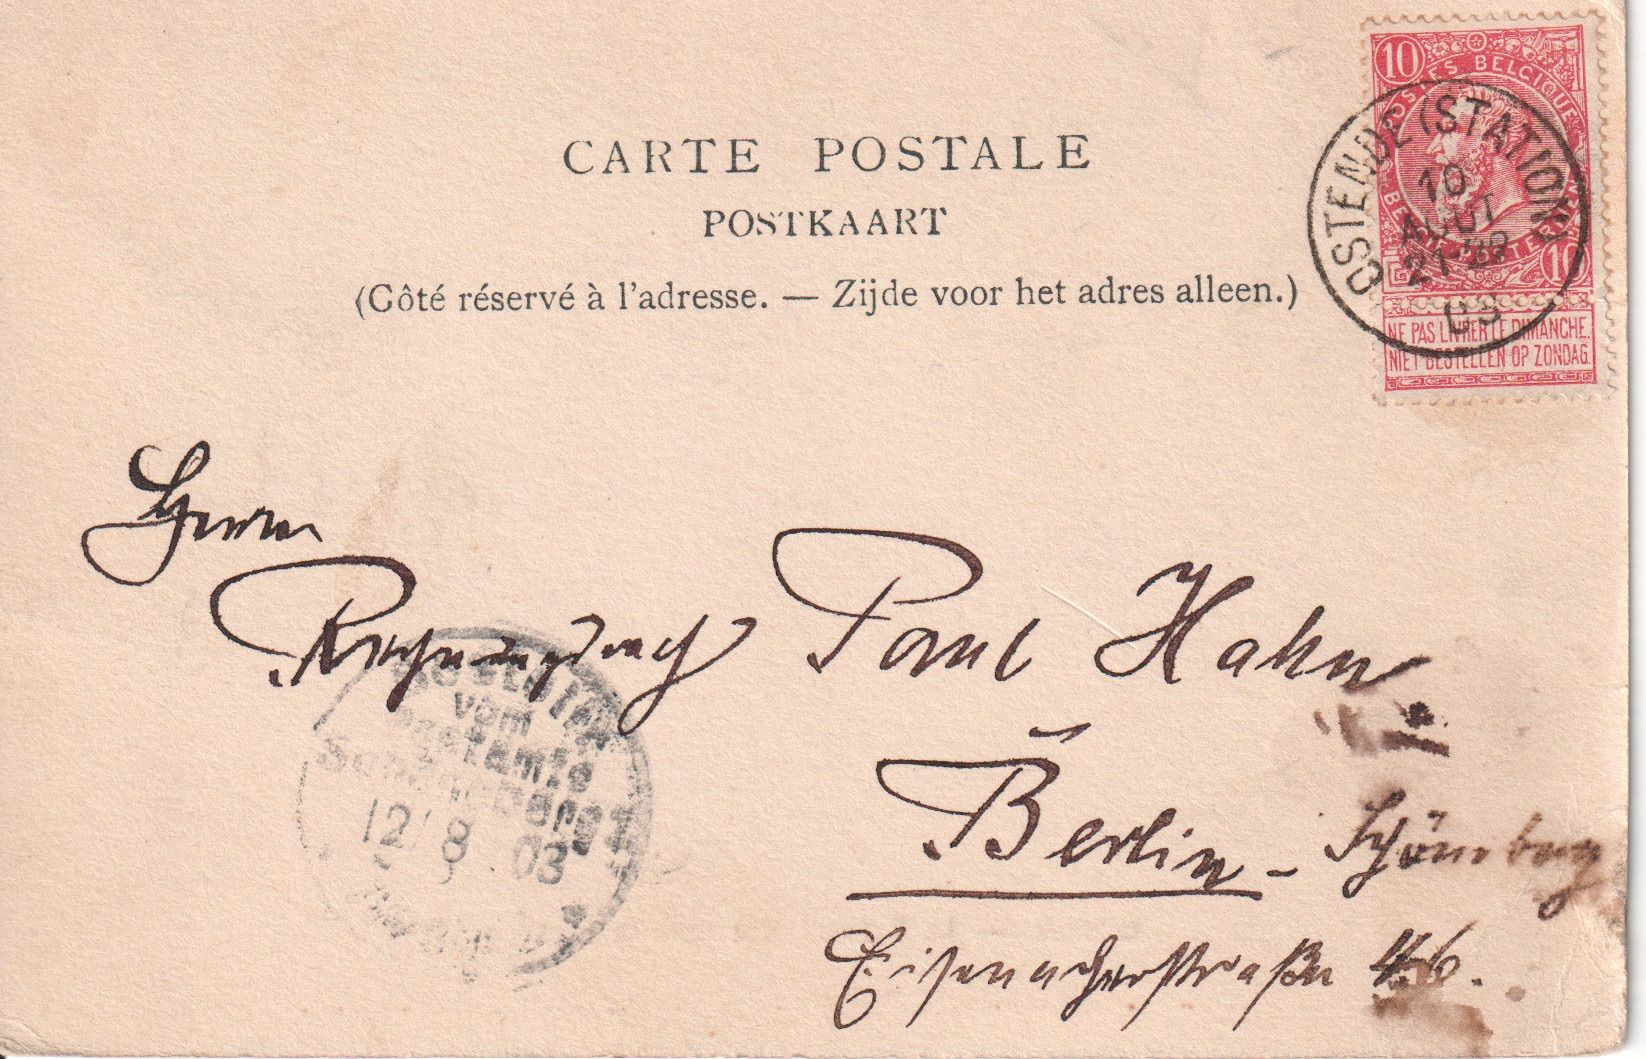 CARTE POSTALE
POSTKAART
(Côté réservé à l'adresse. — Zijde voor het adres alleen.)
10
POSTES BELGIQUE
10
NE PAS LIVRER LE DIMANCHE.
NIET BESTELLEN OP ZONDAG.
OSTENDE (STATION)
10
AOUT
21-22
03
Herrn
Rechnungsrath Paul Hahn
Berlin - Schöneberg
Eisenacherstraße 46.
vom
Postamte
Schöneberg 1
12/8 03